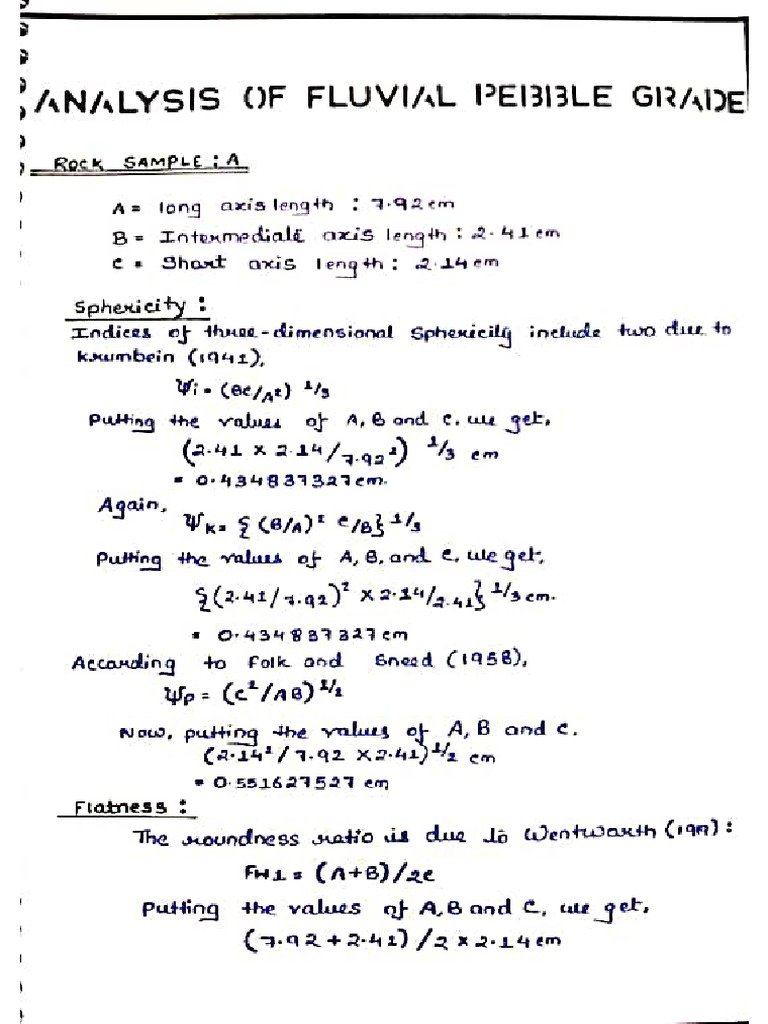 ANALYSIS OF FLUVIAL PEBBLE GRADE
ROCK SAMPLE : A
A = long axis length : 7.92 cm
B = Intermediate axis length : 2.41 cm
C = Short axis length : 2.14 cm
Sphericity :
Indices of three-dimensional Sphericity include two due to
Krumbein (1941),
Ψi = (BC/A²) 1/3
Putting the values of A, B and C, we get,
(2.41 × 2.14 / 7.92²) 1/3 cm
= 0.434837327 cm.
Again,
ΨK = {(B/A)² C/B} 1/3
Putting the values of A, B, and C, we get,
{(2.41/7.92)² × 2.14/2.41} 1/3 cm.
= 0.434837327 cm
According to Folk and Sneed (1958),
Ψp = (C²/AB) 1/2
Now, putting the values of A, B and C.
(2.14²/7.92 × 2.41) 1/2 cm
= 0.551627527 cm
Flatness :
The roundness ratio is due to Wentworth :
FW1 = (A+B)/2C
Putting the values of A, B and C, we get,
(7.92 + 2.41) / 2 × 2.14 cm